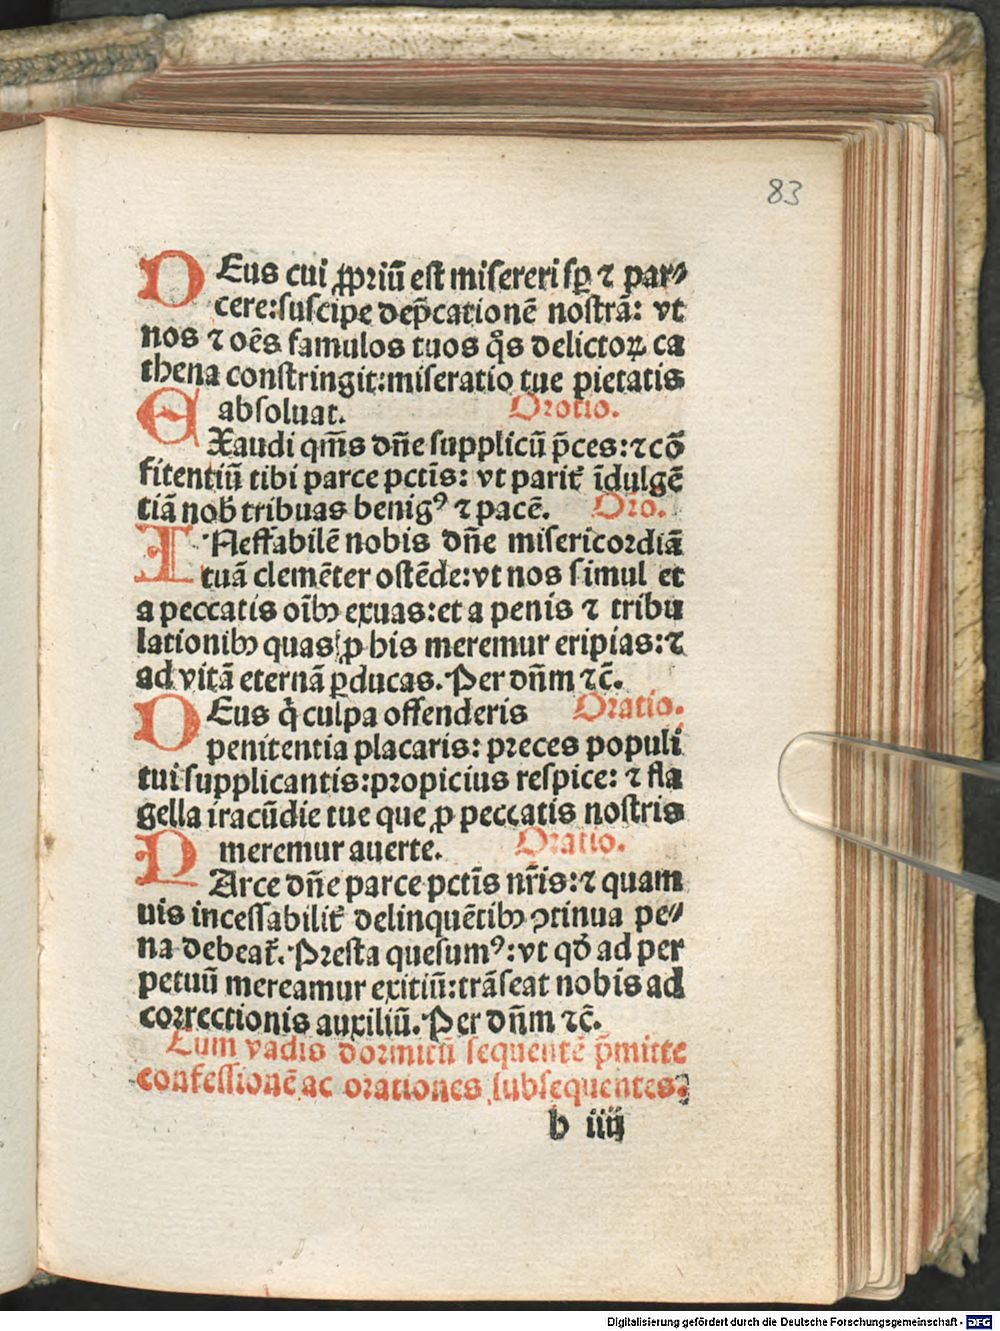 83
DEus cui ꝓpriū est misereri sꝑ ⁊ par⸗
cere: suscipe dep̄cationē nostrā: vt
nos ⁊ oēs famulos tuos q̊s delictoꝝ ca
thena constringit: miseratio tue pietatis
absoluat. Orotio.
EXaudi qm̄s dn̄e supplicū p̄ces: ⁊ cō
fitentiū tibi parce pctīs: vt parit̄ īdulgē
tiā nob̄ tribuas benigꝰ ⁊ pacē. Oro.
INeffabilē nobis dn̄e misericordiā
tuā clemēter ostēde: vt nos simul et
a peccatis oībꝫ exuas: et a penis ⁊ tribu
lationibꝫ quas ꝓ his meremur eripias: ⁊
ad vitā eternā ꝑducas. Per dn̄m ⁊c̄.
DEus q̄ culpa offenderis Oratio.
penitentia placaris: preces populi
tui supplicantis: propicius respice: ⁊ fla
gella iracūdie tue que ꝓ peccatis nostris
meremur auerte. Oratio.
PArce dn̄e parce pctīs nr̄is: ⁊ quam
uis incessabilit̄ delinquētibꝫ ꝯtinua pe⸗
na debeat̄. Presta quesumꝰ: vt qd̄ ad per
petuū mereamur exitiū: trāseat nobis ad
correctionis auxiliū. Per dn̄m ⁊c̄.
Cum vadis dormitū sequentē p̄mitte
confessionē ac orationes subsequentes.
b iiij
Digitalisierung gefördert durch die Deutsche Forschungsgemeinschaft - DFG